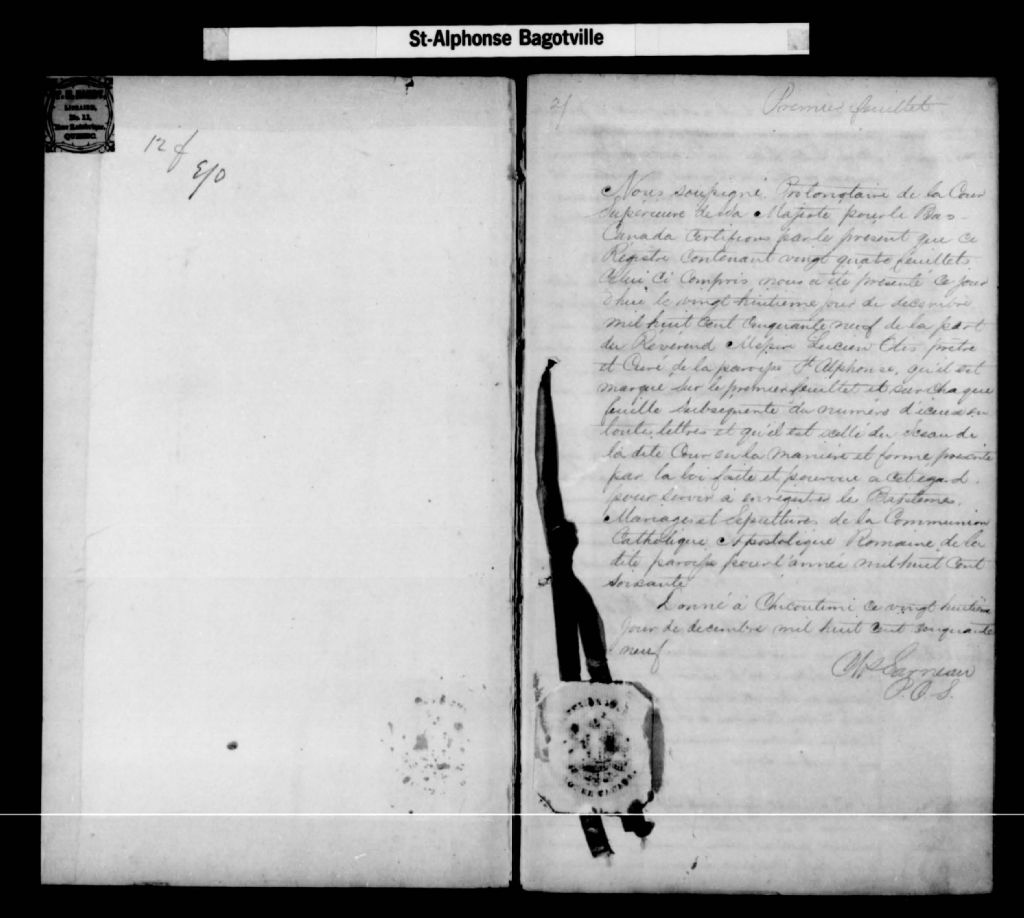 St-Alphonse Bagotville
LIBRAIRE,
No. 12,
QUEBEC.
12 f
2/
Premier feuillet
Nous soussigné Protonotaire de la Cour
Superieure de Sa Majesté pour le Bas-
Canada Certifions par le present que ce
Régistre contenant vingt quatre feuillets
celui ci compris nous a été presenté ce jour
d'hui le vingt huitieme jour de decembre
mil huit cent cinquante neuf de la part
du Révérend Messire Lucien Otis prêtre
et Curé de la paroisse St Alphonse, qu'il est
marqué sur le premier feuillet et sur chaque
feuille subsequente du numéro d'iceux en
toute lettres et qu'il est scellé du Sceau de
la dite Cour en la manière et forme prescrite
par la loi faite et pourvue a cet egard
pour servir à enregistrer les Baptemes,
Mariages et Sepultures de la Communion
Catholique Apostolique Romaine de la
dite paroisse pour l'année mil huit cent
soixante
Donné à Chicoutimi ce vingt huitieme
jour de decembre mil huit cent cinquante
neuf.
Garneau
P.C.S.